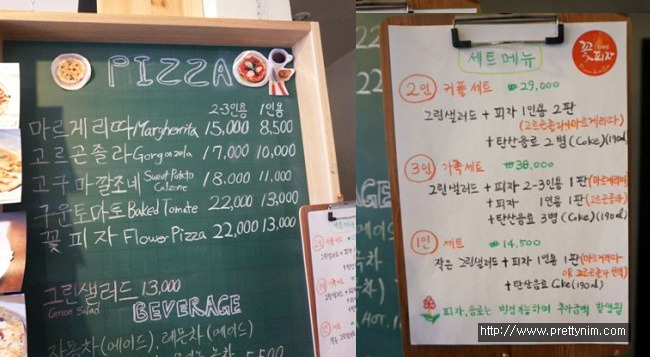 PIZZA
2-3인용 1인용
마르게리따 Margherita 15,000 8,500
고르곤졸라 Gorgonzola 17,000 10,000
고구마깔조네 Sweet Potato Calzone 18,000 11,000
구운토마토 Baked Tomato 22,000 13,000
꽃피자 Flower Pizza 22,000 13,000
그린샐러드 13,000
Green Salad
BEVERAGE
자몽차(에이드), 레몬차(에이드)
5,500
세트메뉴
꽃피자
2인 커플세트 ₩29,000
그린샐러드 + 피자 1인용 2판
(고르곤졸라/마르게리따)
+ 탄산음료 2병 (Coke)(190ml)
3인 가족세트 ₩38,000
그린샐러드 + 피자 2-3인용 1판(마르게리따)
+ 피자 1인용 1판(고르곤졸라)
+ 탄산음료 3병 (Coke)(190ml)
1인 세트 ₩14,500
작은 그린샐러드 + 피자 1인용 1판(마르게리따
OR 고르곤졸라 선택)
+ 탄산음료 Coke(190ml)
피자, 음료는 변경가능하며 추가금액 발생됨
BEVERAGE
HOT
http://www.prettynim.com